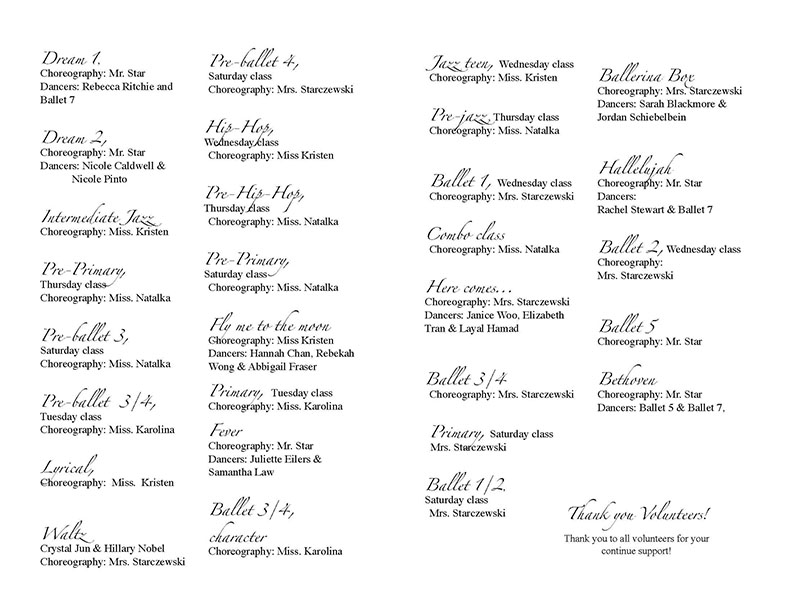 Dream 1.
Choreography: Mr. Star
Dancers: Rebecca Ritchie and
Ballet 7
Dream 2,
Choreography: Mr. Star
Dancers: Nicole Caldwell &
Nicole Pinto
Intermediate Jazz
Choreography: Miss. Kristen
Pre-Primary,
Thursday class
Choreography: Miss. Natalka
Pre-ballet 3,
Saturday class
Choreography: Miss. Natalka
Pre-ballet 3/4,
Tuesday class
Choreography: Miss. Karolina
Lyrical,
Choreography: Miss. Kristen
Waltz
Crystal Jun & Hillary Nobel
Choreography: Mrs. Starczewski
Pre-ballet 4,
Saturday class
Choreography: Mrs. Starczewski
Hip-Hop,
Wednesday class
Choreography: Miss Kristen
Pre-Hip-Hop,
Thursday class
Choreography: Miss. Natalka
Pre-Primary,
Saturday class
Choreography: Miss. Natalka
Fly me to the moon
Ghoreography: Miss Kristen
Dancers: Hannah Chan, Rebekah
Wong & Abbigail Fraser
Primary, Tuesday class
Choreography: Miss. Karolina
Fever
Choreography: Mr. Star
Dancers: Juliette Eilers &
Samantha Law
Ballet 3/4,
character
Choreography: Miss. Karolina
Jazz teen, Wednesday class
Choreography: Miss. Kristen
Pre-jazz, Thursday class
Choreography: Miss. Natalka
Ballet 1, Wednesday class
Choreography: Mrs. Starczewski
Combo class
Choreography: Miss. Natalka
Here comes...
Choreography: Mrs. Starczewski
Dancers: Janice Woo, Elizabeth
Tran & Layal Hamad
Ballet 3/4
Choreography: Mrs. Starczewski
Primary, Saturday class
Mrs. Starczewski
Ballet 1/2.
Saturday class
Mrs. Starczewski
Ballerina Box
Choreography: Mrs. Starczewski
Dancers: Sarah Blackmore &
Jordan Schiebelbein
Hallelujah
Choreography: Mr. Star
Dancers:
Rachel Stewart & Ballet 7
Ballet 2, Wednesday class
Choreography:
Mrs. Starczewski
Ballet 5
Choreography: Mr. Star
Bethoven
Choreography: Mr. Star
Dancers: Ballet 5 & Ballet 7,
Thank you Volunteers!
Thank you to all volunteers for your
continue support!